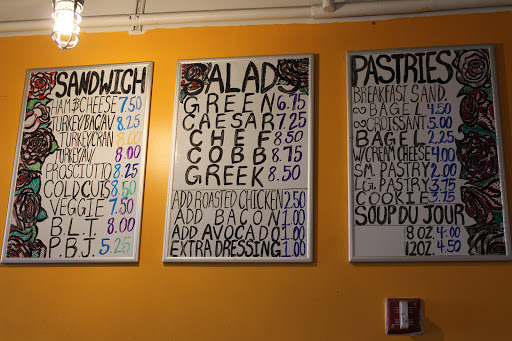 SANDWICH
HAM & CHEESE 7.50
TURKEY/BACAV 8.25
TURKEY/CRAN 8.00
TURKEY/AV 8.00
PROSCIUTTO 8.25
COLD CUTS 8.50
VEGGIE 7.50
B.L.T. 8.00
P.B.J. 5.25
SALAD
GREEN 6.75
CAESAR 7.25
CHEF 8.50
COBB 8.75
GREEK 8.50
ADD ROASTED CHICKEN 2.50
ADD BACON 1.00
ADD AVOCADO 1.00
EXTRA DRESSING 1.00
PASTRIES
BREAKFAST SAND.
BAGEL 4.50
CROISSANT 5.00
BAGEL 2.25
W/CREAM CHEESE 4.00
SM. PASTRY 2.00
LG. PASTRY 3.75
COOKIE 3.75
SOUP DU JOUR
8 OZ 4.00
12 OZ. 4.50